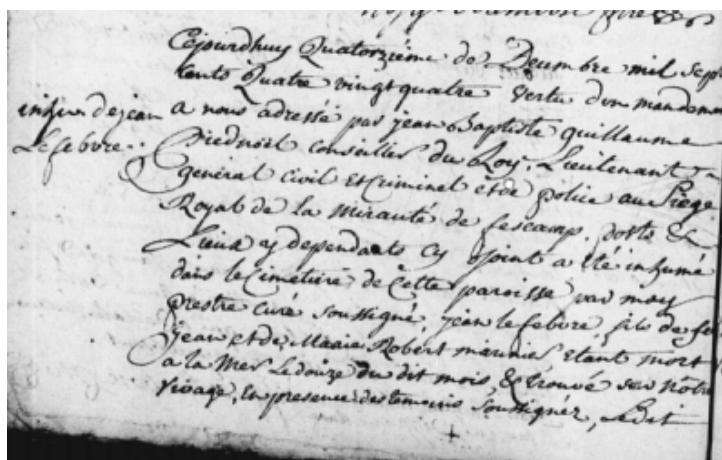 Cejourdhuy Quatorzieme de Decembre mil sept
cents Quatre vingt quatre vertu d'un mandement
a nous adressé par jean Baptiste guillaume
inhum. de jean
Le febvre.
Piednoël Conseiller du Roy, Lieutenant
general Civil et Criminel et de police au Siege
Royal de la mirauté de fescamp, ports &
Lieux y dependants Cy joint a été inhumé
dans le Cimetiere de Cette paroisse par moy
prestre curé soussigné, jean le febvre fils de feu
jean et de Marie Robert marinier étant mort
a la mer Le douze du dit mois, & trouvé sur notre
rivage, En presence des temoins soussignéz, Ledit